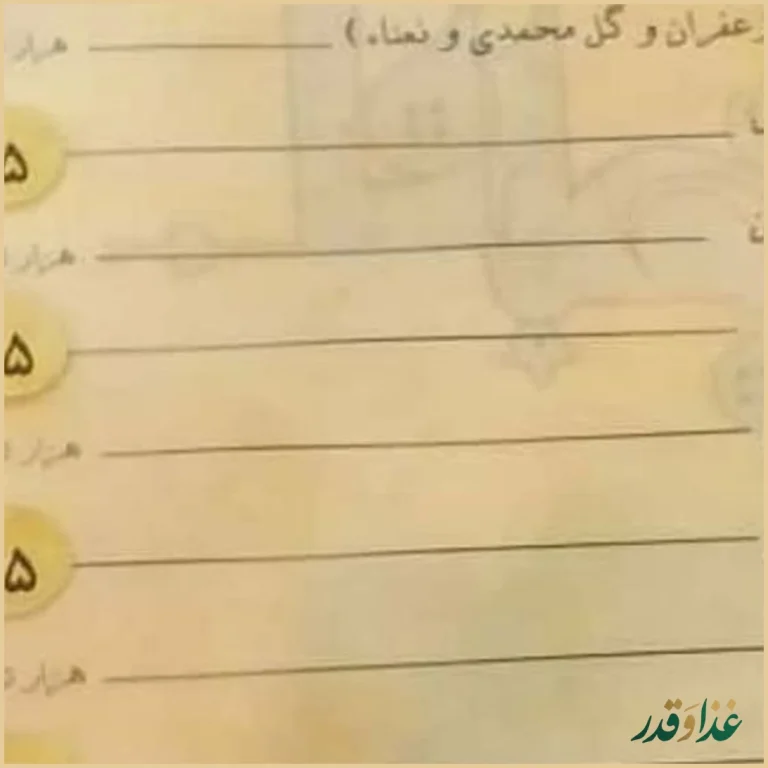 زعفران و گل محمدی و نعناء ) هزار
۵
هزار
۵
هزار
۵
هزار
غذا و قدر